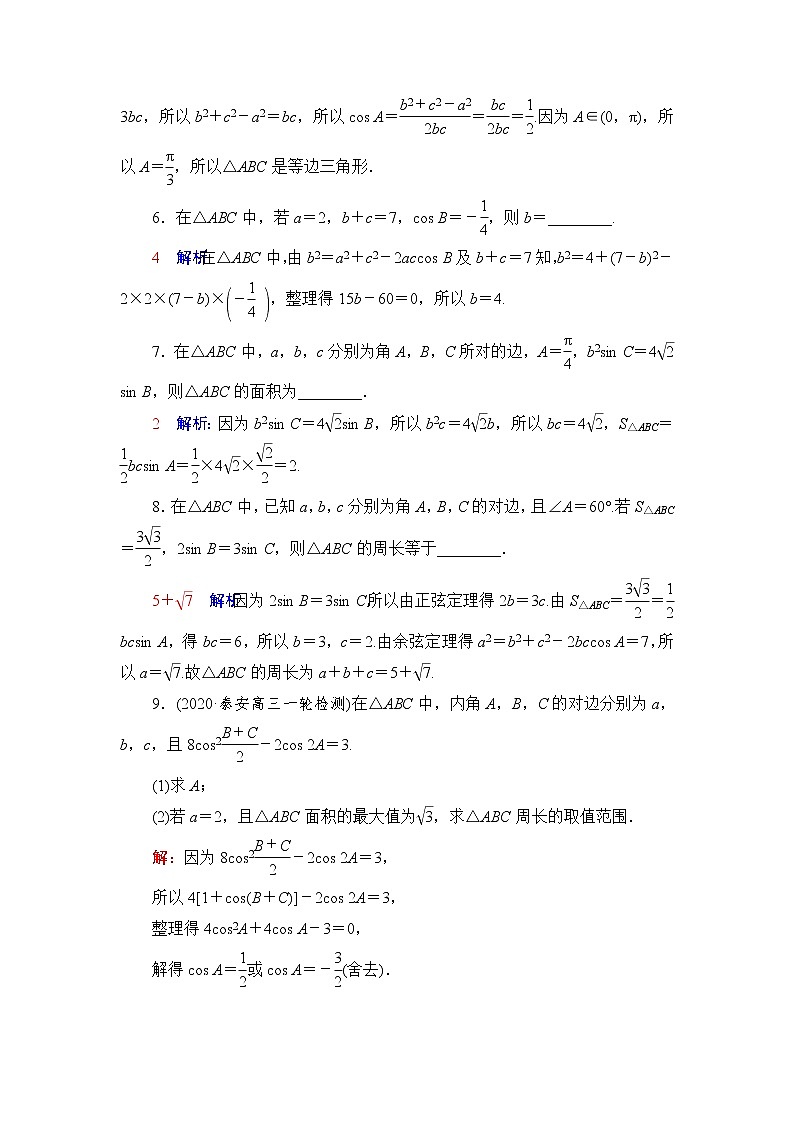 3bc，所以 b²＋c²－a²＝bc，所以 cos A＝(b²＋c²－a²)/(2bc)＝bc/(2bc)＝1/2.因为 A∈(0，π)，所
以 A＝π/3，所以△ABC 是等边三角形．
6．在△ABC 中，若 a＝2，b＋c＝7，cos B＝－1/4，则 b＝________.
4　解析 在△ABC 中，由 b²＝a²＋c²－2accos B 及 b＋c＝7 知，b²＝4＋(7－b)²－
2×2×(7－b)×(－1/4)，整理得 15b－60＝0，所以 b＝4.
7．在△ABC 中，a，b，c 分别为角 A，B，C 所对的边，A＝π/4，b²sin C＝4√2
sin B，则△ABC 的面积为________．
2　解析：因为 b²sin C＝4√2sin B，所以 b²c＝4√2b，所以 bc＝4√2，S△ABC＝
1/2bcsin A＝1/2×4√2×√2/2＝2.
8．在△ABC 中，已知 a，b，c 分别为角 A，B，C 的对边，且∠A＝60°.若 S△ABC
＝3√3/2，2sin B＝3sin C，则△ABC 的周长等于________．
5＋√7　解析 因为 2sin B＝3sin C，所以由正弦定理得 2b＝3c.由 S△ABC＝3√3/2＝1/2
bcsin A，得 bc＝6，所以 b＝3，c＝2.由余弦定理得 a²＝b²＋c²－2bccos A＝7，所
以 a＝√7.故△ABC 的周长为 a＋b＋c＝5＋√7.
9．(2020·泰安高三一轮检测)在△ABC 中，内角 A，B，C 的对边分别为 a，
b，c，且 8cos²(B＋C)/2－2cos 2A＝3.
(1)求 A；
(2)若 a＝2，且△ABC 面积的最大值为√3，求△ABC 周长的取值范围．
解：因为 8cos²(B＋C)/2－2cos 2A＝3，
所以 4[1＋cos(B＋C)]－2cos 2A＝3，
整理得 4cos²A＋4cos A－3＝0，
解得 cos A＝1/2或 cos A＝－3/2(舍去)．